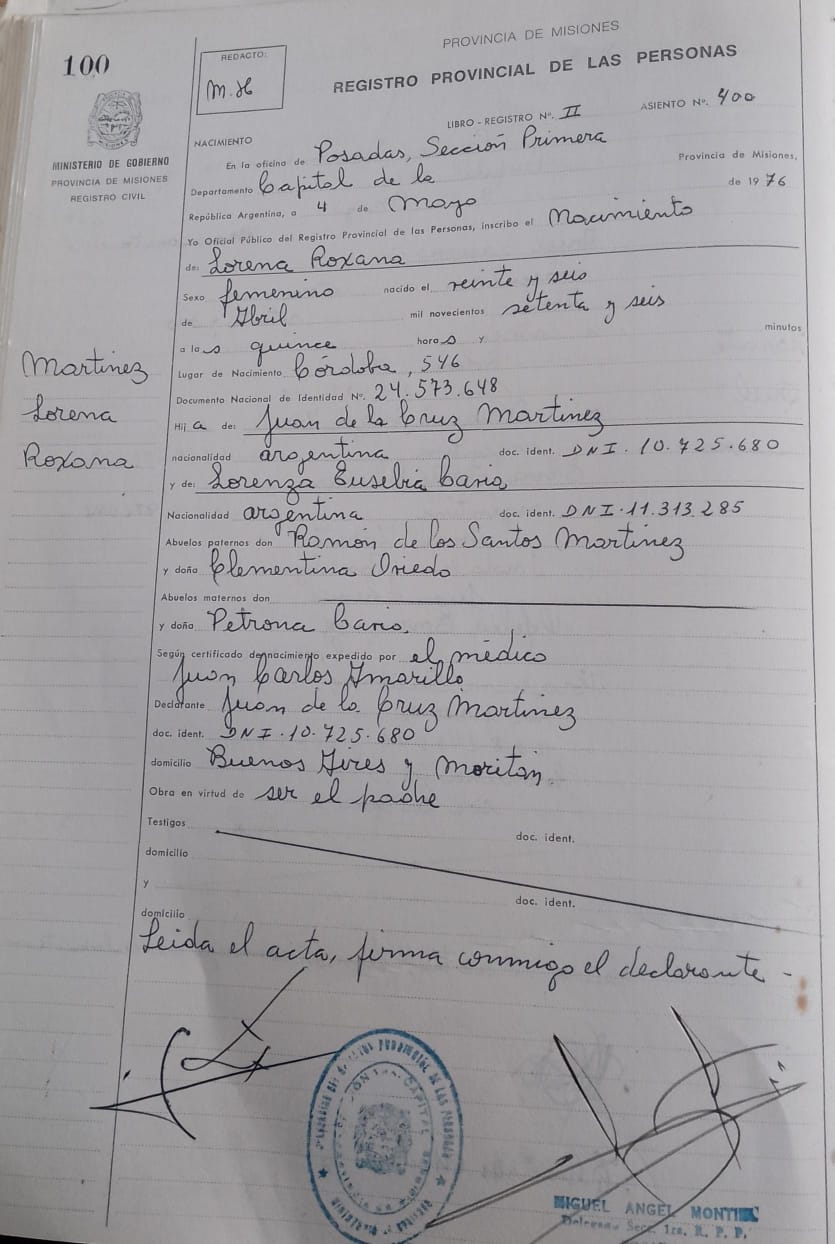 100
REDACTO:
M. H
PROVINCIA DE MISIONES
REGISTRO PROVINCIAL DE LAS PERSONAS
LIBRO - REGISTRO Nº. II ASIENTO Nº. 400
MINISTERIO DE GOBIERNO
PROVINCIA DE MISIONES
REGISTRO CIVIL
NACIMIENTO
En la oficina de Posadas, Sección Primera
Departamento Capital de la Provincia de Misiones,
República Argentina, a 4 de Mayo de 1976
Yo Oficial Público del Registro Provincial de las Personas, inscribo el Nacimiento
de: Lorena Roxana
Sexo femenino nacido el veinte y seis
de Abril mil novecientos setenta y seis
a las quince horas y minutos
Lugar de Nacimiento Córdoba, 546
Documento Nacional de Identidad Nº. 24.573.648
Martinez
Lorena
Roxana
Hija de: Juan de la Cruz Martinez
nacionalidad argentina doc. ident. DNI. 10.725.680
y de: Lorenza Eusebia Cario
Nacionalidad argentina doc. ident. DNI.11.313.285
Abuelos paternos don Ramón de los Santos Martinez
y doña Clementina Oviedo
Abuelos maternos don
y doña Petrona Cario.
Según certificado de nacimiento expedido por el médico
Juan Carlos Amarillo
Declarante Juan de la Cruz Martinez
doc. ident. DNI.10.725.680
domicilio Buenos Aires y Moritán
Obra en virtud de ser el padre
Testigos doc. ident.
domicilio
y doc. ident.
domicilio
Leida el acta, firma conmigo el declarante -
MIGUEL ANGEL
Delegado Secc. 1ra. R. P. P.